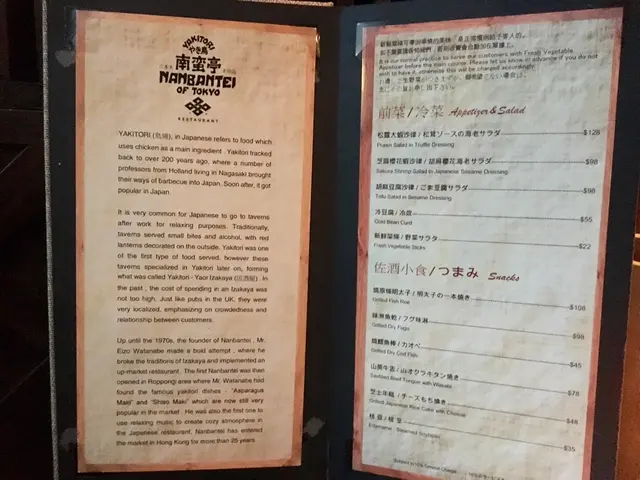 YAKITORI
やき鳥
南蛮亭
NANBANTEI
OF TOKYO
RESTAURANT
YAKITORI (鳥燒), in Japanese refers to food which
uses chicken as a main ingredient . Yakitori tracked
back to over 200 years ago, where a number of
professors from Holland living in Nagasaki brought
their ways of barbecue into Japan. Soon after, it got
popular in Japan.
It is very common for Japanese to go to taverns
after work for relaxing purposes. Traditionally,
taverns served small bites and alcohol, with red
lanterns decorated on the outside. Yakitori was one
of the first type of food served, however these
taverns specialized in Yakitori later on, forming
what was called Yakitori - Yaor Izakaya (居酒屋). In
the past , the cost of spending in an Izakaya was
not too high. Just like pubs in the UK, they were
very localized, emphasizing on crowdedness and
relationship between customers.
Up until the 1970s, the founder of Nanbantei , Mr.
Eizo Watanabe made a bold attempt , where he
broke the traditions of Izakaya and implemented an
up-market restaurant . The first Nanbantei was then
opened in Roppongi area where Mr. Watanabe had
found the famous yakitori dishes - "Asparagus
Maki" and "Shiso Maki" which are now still very
popular in the market . He was also the first one to
use relaxing music to create cozy atmosphere in
the Japanese restaurant. Nanbantei has entered
the market in Hong Kong for more than 25 years.
It is our normal practice to serve our customers with Fresh Vegetable
Appetizer before the main course. Please let us know in advance if you do not
wish to have it, otherwise this will be charged accordingly.
前菜 / 冷菜 Appetizer & Salad
松露大蝦沙律 / 松茸ソースの海老サラダ $128
Prawn Salad in Truffle Dressing
芝麻櫻花蝦沙律 / 胡麻櫻花海老サラダ $98
Sakura Shrimp Salad in Japanese Sesame Dressing
胡麻豆腐沙律 / ごま豆腐サラダ $98
Tofu Salad in Sesame Dressing
冷豆腐 / 冷奴 $55
Cold Bean Curd
新鮮菜條 / 野菜サラタ $22
Fresh Vegetable Sticks
佐酒小食 / つまみ Snacks
燒原條明太子 / 明太子の一本焼き $108
Grilled Fish Roe
味淋魚乾 / フグ味淋 $98
Grilled Dry Fugu
燒鱈魚棒 / カオペ $45
Grilled Dry Cod Fish
山葵牛舌 / 山オワラ牛タン焼き $78
Sauteed Beef Tongue with Wasabi
芝士年糕 / チースもち焼き $48
Grilled Japanese Rice Cake with Cheese
枝豆 / 枝豆 $35
Edamame - Steamed Soybean